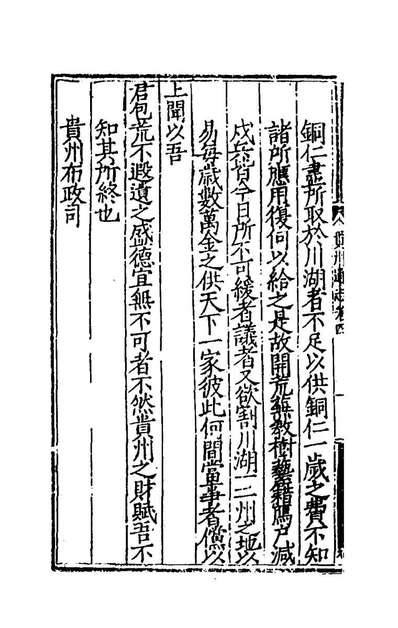 銅仁盡所取於川湖者不足以供銅仁一歲之費不知
諸所應用復何以給之是故開荒蕪教樹藝籍鴈戶減
戍兵皆今日所不可緩者議者又欲割川湖一二州之地以
易每歲數萬金之供天下一家彼此何間當事者儻以
上聞以吾
君包荒不遐遺之盛德宜無不可者不然貴州之財賦吾不
知其所終也
貴州布政司
貴州通志卷四